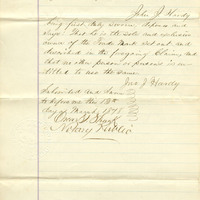 John J. Hardy
being first duly sworn, deposes and
says: That he is the sole and exclusive
owner of the Trade Mark set out and
described in the foregoing Claims and
that no other person or persons is en-
titled to use the same
Jno J Hardy
Subscribed and Sworn
to before me this 13th
day of March 1878
Notary Public